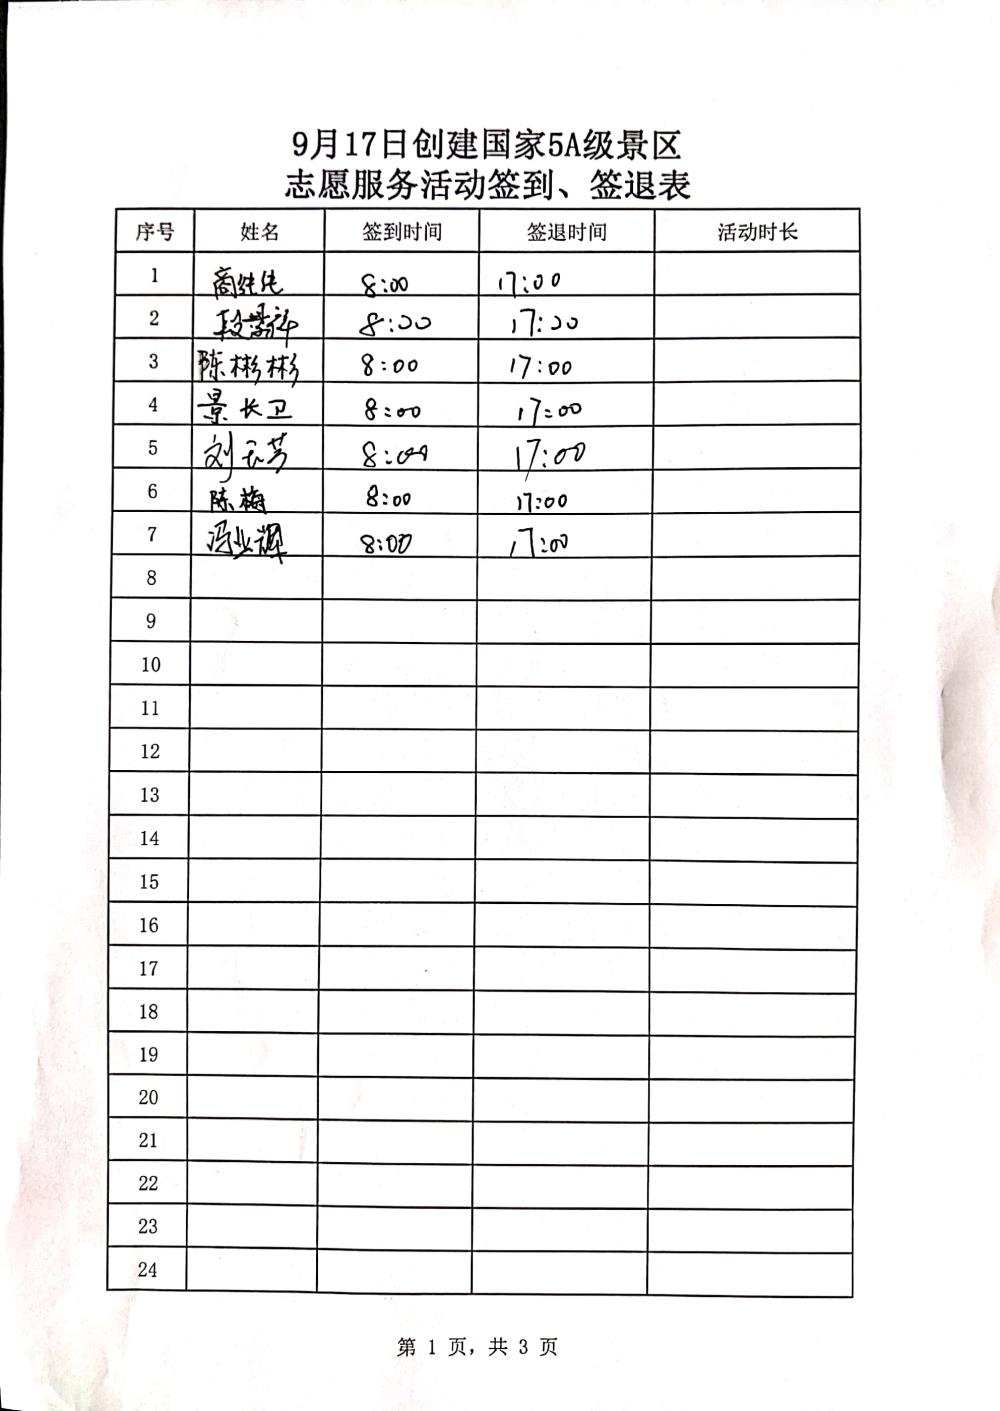 9月17日创建国家5A级景区
志愿服务活动签到、签退表
序号 姓名 签到时间 签退时间 活动时长
1 商 8:00 17:00
2 段 8:00 17:00
3 陈彬彬 8:00 17:00
4 景长卫 8:00 17:00
5 刘玉芳 8:00 17:00
6 陈梅 8:00 17:00
7 冯业辉 8:00 17:00
8
9
10
11
12
13
14
15
16
17
18
19
20
21
22
23
24
第 1 页，共 3 页